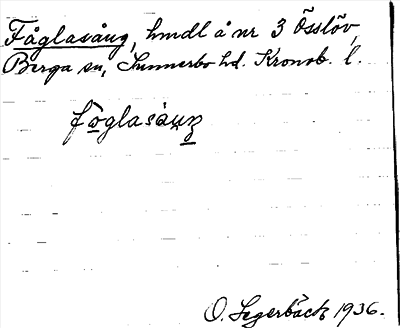 Fåglasång, hmdl å nr 3 Össlöv,
Berga sn, Sunnerbo hd. Kronob. l.
fo̲glasàŋ̲
O. Segerbäck 1936.